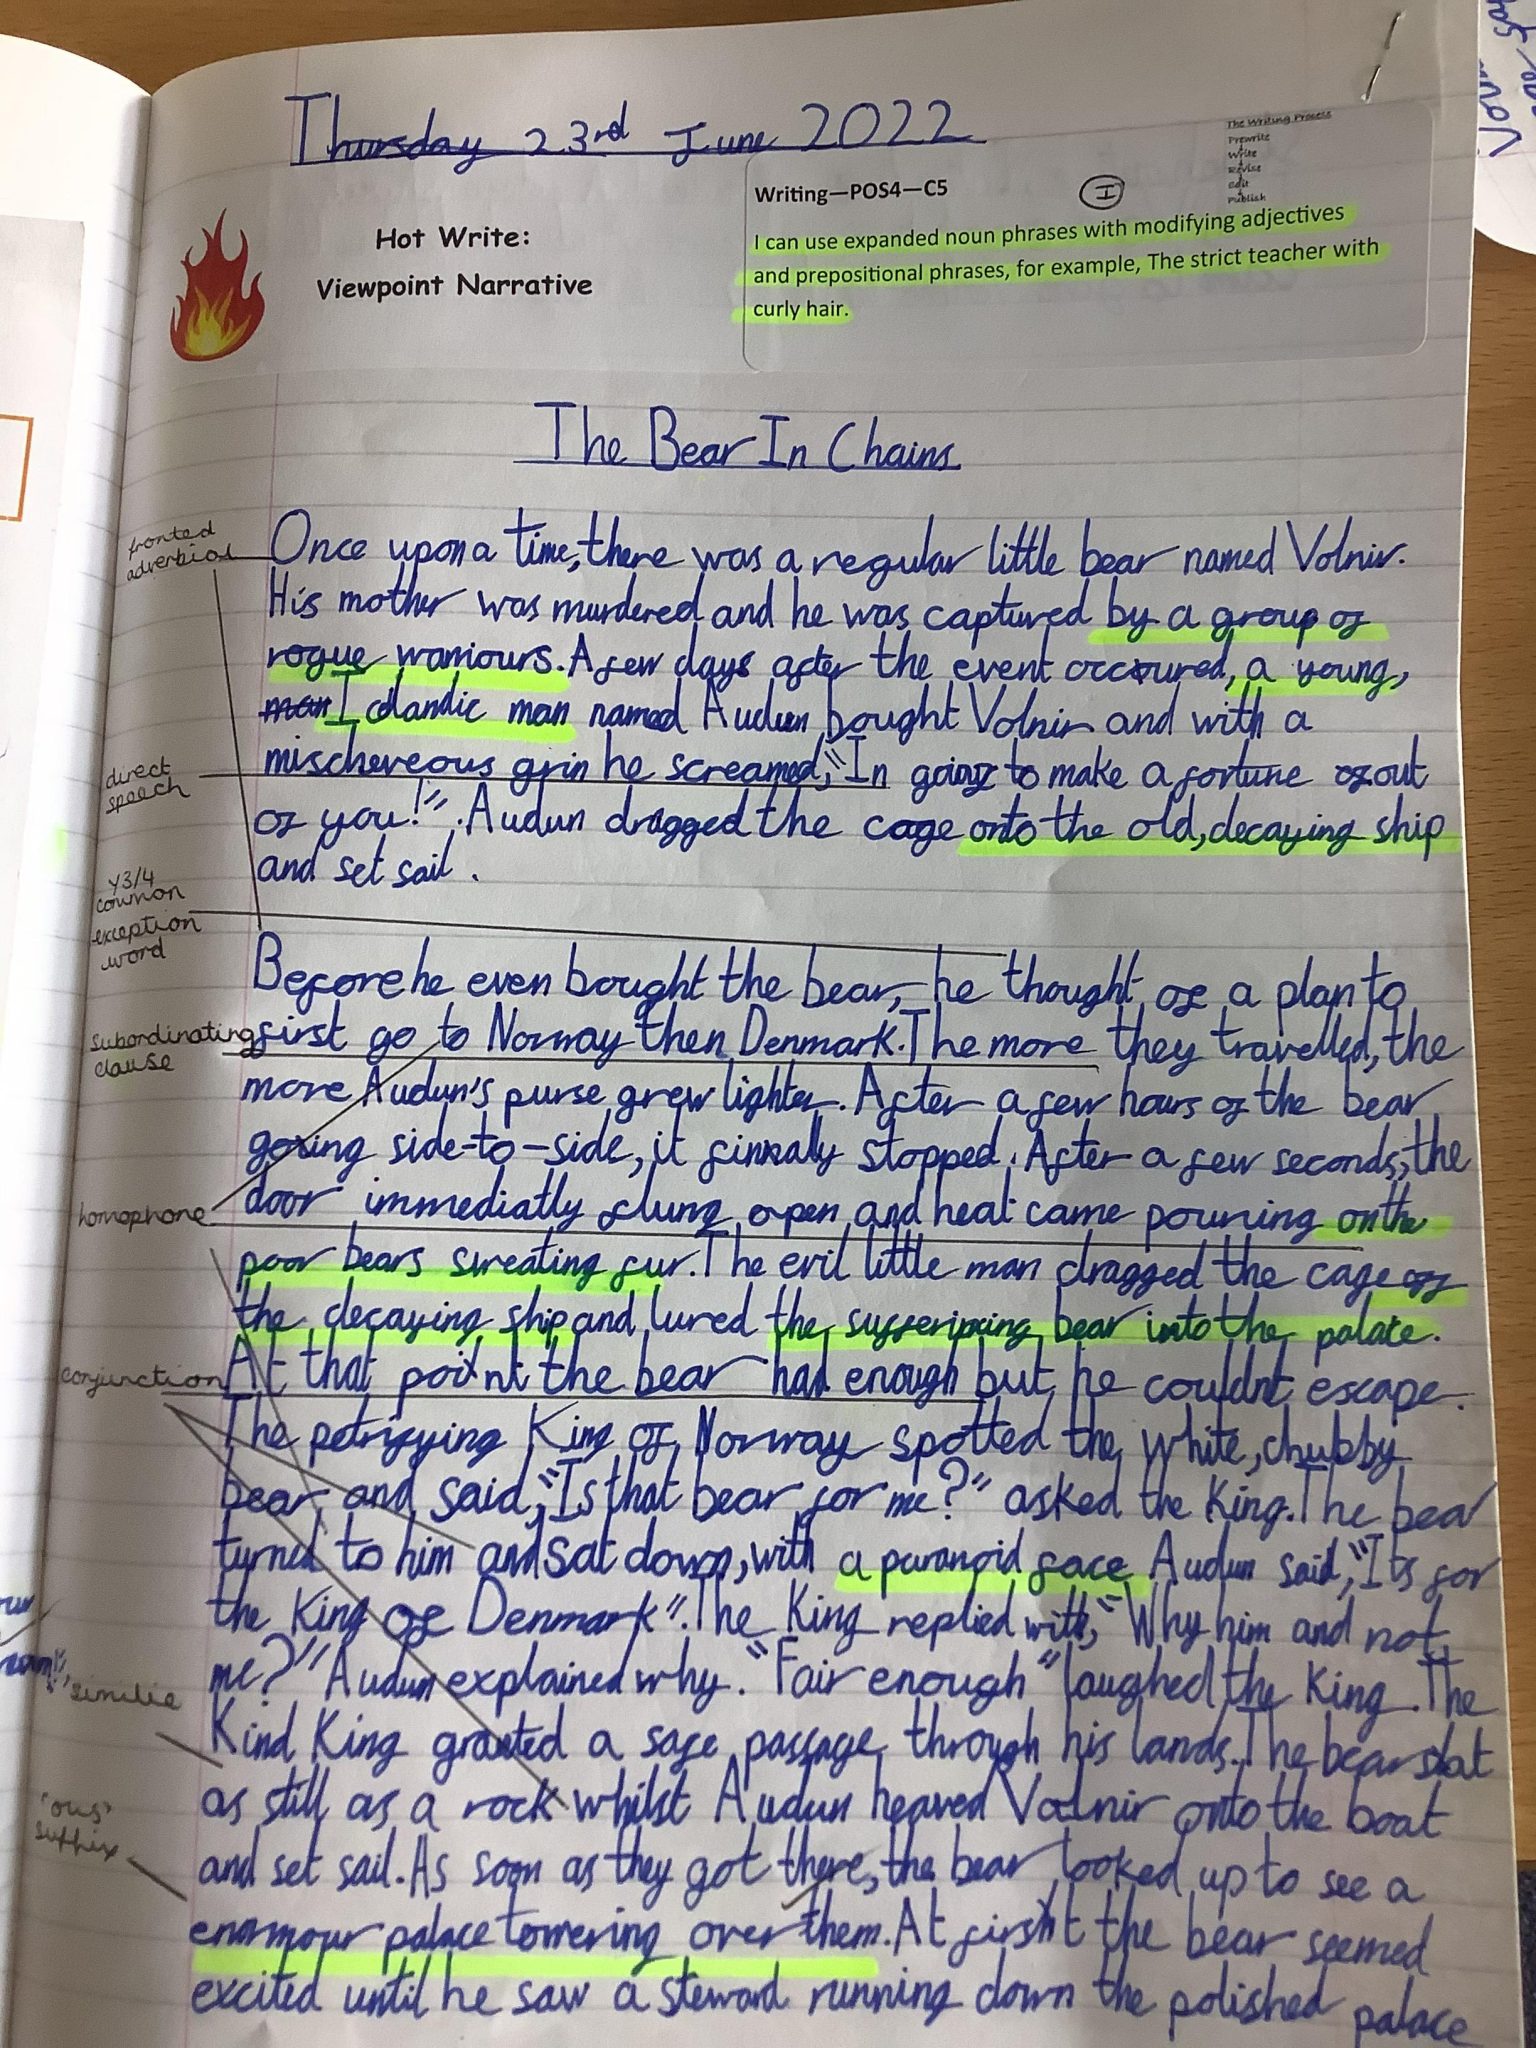 Thursday 23rd June 2022
The Writing Process
Prewrite
Write
Revise
Edit
Publish
Writing—POS4—C5
I
Hot Write:
Viewpoint Narrative
I can use expanded noun phrases with modifying adjectives
and prepositional phrases, for example, The strict teacher with
curly hair.
The Bear In Chains
fronted
adverbial
Once upon a time, there was a regular little bear named Volnir.
His mother was murdered and he was captured by a group of
rogue warriours. A few days after the event occoured, a young,
man Iclandic man named Audun bought Volnir and with a
direct
speech
mischeveous grin he screamed, "Im going to make a fortune of out
of you!". Audun dragged the cage onto the old, decaying ship
and set sail.
Y3/4
common
exception
word
Before he even bought the bear, he thought of a plan to
subordinating
clause
first go to Norway then Denmark. The more they travelled, the
more Audun's purse grew lighter. After a few hours of the bear
going side-to-side, it finnaly stopped. After a few seconds, the
homophone
door immediatly flung open and heat came pouring on the
poor bears sweating fur. The evil little man dragged the cage off
the decaying ship and lured the suffering bear into the palace.
conjunction
At that point the bear had enough but he couldnt escape.
The petrifying King of Norway spotted the white, chubby
bear and said, "Is that bear for me?" asked the King. The bear
turned to him and sat down, with a paranoid face Audun said, "Its for
the King of Denmark". The King replied with, "Why him and not
me?" Audun explained why. "Fair enough" laughed the King. The
similie
Kind King granted a safe passage through his lands. The bear sat
as still as a rock whilst Audun heaved Volnir onto the boat
'ous'
suffix
and set sail. As soon as they got there, the bear looked up to see a
enarmour palace towering over them. At first the bear seemed
excited until he saw a steward running down the polished palace